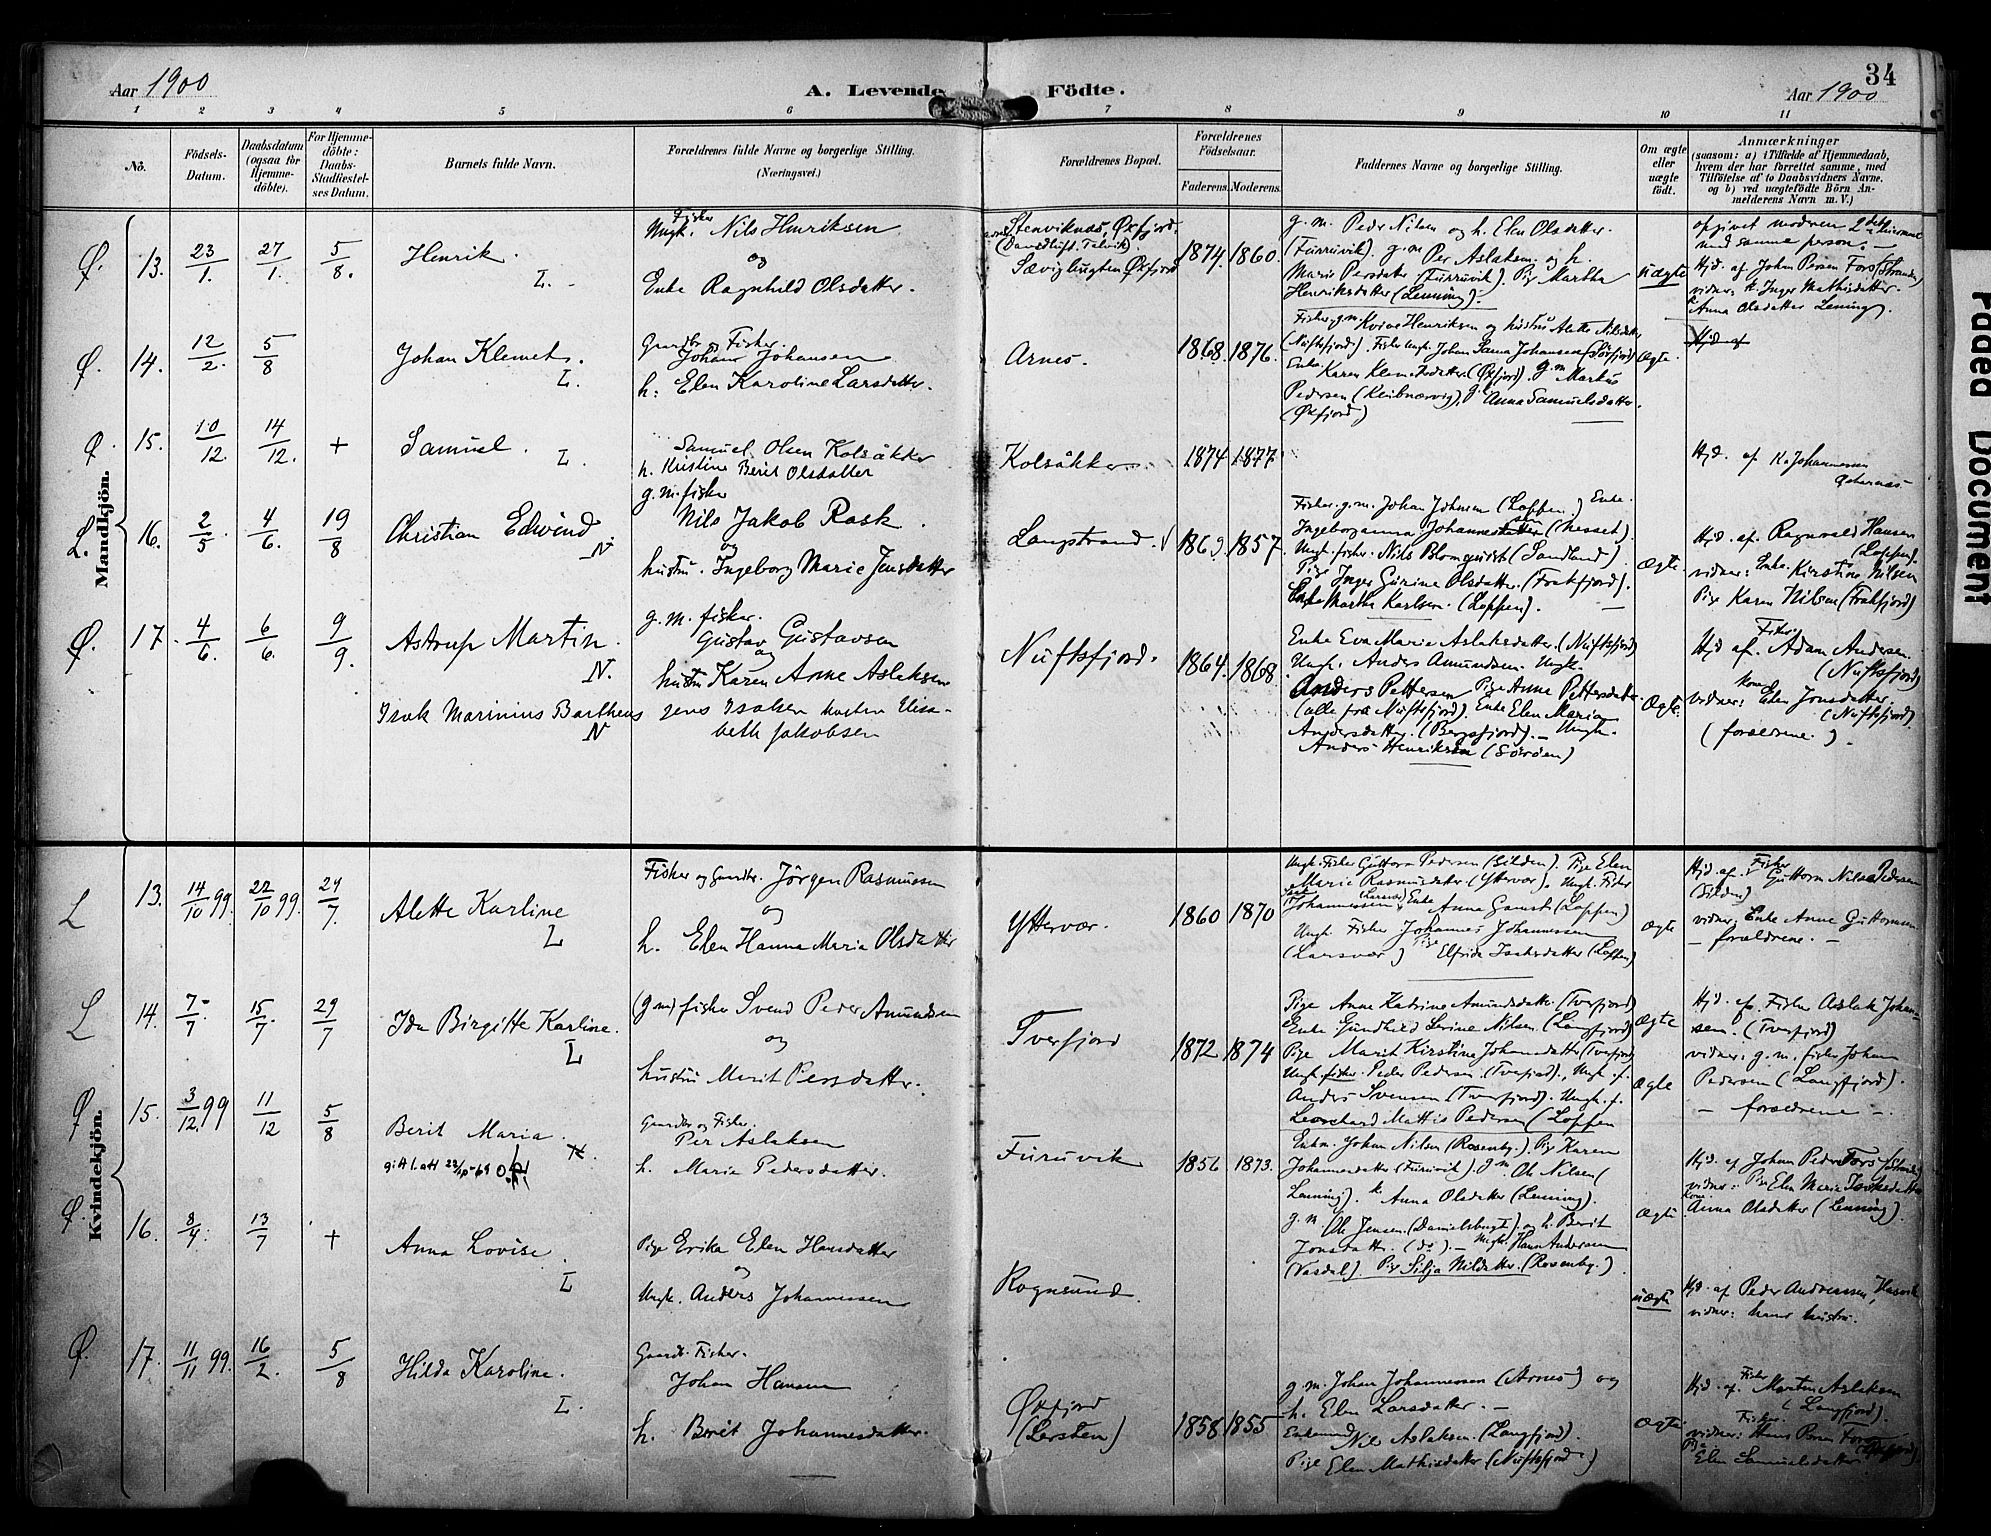 Aar 1900
A. Levende Födte.
34
Aar 1900
1 2 3 4 5 6 7 8 9 10 11
No.
Födsels-Datum.
Daabsdatum (ogsaa for Hjemme-döbte).
For Hjemme-döbte: Daabs-Stadfæstel-ses Datum.
Barnets fulde Navn.
Forældrenes fulde Navne og borgerlige Stilling. (Næringsvei.)
Forældrenes Bopæl.
Forældrenes Födselsaar.
Faderens. Moderens.
Faddernes Navne og borgerlige Stilling.
Om ægte eller uægte födt.
Anmærkninger
(saasom: a) i Tilfælde af Hjemmedaab, hvem der har forrettet samme, med Tilföielse af to Daabsvidners Navne, og b) ved uægtefödte Börn An-melderens Navn m. V.)
Mandkjön.
Ø. 13. 23/1. 27/1. 5/8. Henrik. L.
Fisker
Ungk. Nils Henriksen
og
Enke Ragnhild Olsdatter.
Stenviknæs, Øxfjord,
Øxfjord
1874. 1860.
g. m. Peder Nilsen og h. Elen Olsdatter.
(Furruvik). g. m. Per Aslaksen og h.
Marie Persdatter (Furruvik). Pige Martha
Henriksdatter (Lenning).
uægte
med samme person.
Hjd. af John Persen Fors (Stranden)
vidner: k. Inger Mathisdatter.
Anna Olsdatter Lening).
Ø. 14. 12/2. 5/8 Johan Klemet. L.
Gaardbr. og Fisker.
Johan Johansen
h: Elen Karoline Larsdatter.
Arnes.
1868. 1876.
Henriksen og hustru Alette Nilsdatter
(Nuftsfjord).
Enke Karen (Øxfjord). g. m. Markus
Pedersen Anna Samuelsdatter.
(Øxfjord)
Ægte.
Hjd. af
Ø. 15. 10/12. 14/12. + Samuel. L.
Samuel Olsen Kolsåkker
h. Kristine Berit Olsdatter
Kolsåkker.
1874 1877
Hjd. af K. Johannesen
L. 16. 2/5 4/6. 19/8 Christian Edvind N.
g. m. fisker
Nils Jakob Rask.
og
hustru. Ingeborg Marie Jensdatter
Langstrand.
1869. 1857.
Fisker g. m. Johan Johnsen (Loppen.) Enke.
Ingeboranna Johannesdatter (Nesset).
Ungk. fisker. Nils Blomquist (Sandland)
Pige Inger Gurine Olsdatter. (Frakfjord).
Enke Martha Karlsen. (Loppen).
Ægte.
Hjd. af. Ragnvald Hansen
(Loppen).
vidner: Enke. Kirstine Nilsen
Pige Karen Nilsen (Frakfjord)
Ø. 17. 4/6. 6/6. 9/9. Astrup Martin. N.
g. m. fisker.
Gustav Gustavsen
og
hustru Karen Anne Aslaksen
Nuftsfjord.
1864. 1868
Enke Eva Marie Aslaksdatter. (Nuftsfjord)
Ungk. Anders Amundsen. Ungk.
Anders Pettersen Pige Anne Pettersdatter
(alle fra Nuftsfjord). Enke Elen Maria
Andersdatter. (Bergsfjord). – Ungk.
Anders Henriksen (Sörøen)
Ægte.
Fisker
Hjd af. Adam Andersen.
(Nuftsfjord)
vidner: kone Elen Jonsdatter.
(Nuftsfjord)
(forældrene.)
Isak Marinius Bartheus N
Jens Isaksen hustru Elisa-
beth Jakobsen
Kvindekjön.
L 13. 14/10 99. 22/10 99. 29/7. Alette Karline L
Fisker og Gaardbr. Jörgen Rasmussen
og
h. Elen Hanna Maria Olsdatter
Yttervær.
1860 1870
Ungk. Fisker Guttorm Pedersen (Silden). Pige Elen
Marie Rasmusdatter (Yttervær). Ungk. Fisker
Johannessen Enke Anna Gamst (Loppen)
Ungk Fisker Johannes Johannessen
(Larsvær) Pige Elfrida Isaksdatter (Loppen)
Ægte
Hjd. af Fisker Guttorm Pedersen
(Silden)
vidner: Enke Anne
– forældrene. –
L 14. 7/7. 15/7. 29/7 Ida Birgitte Karline. L
(g m) fisker Svend Peder Amundsen
og
hustru Marit Persdatter.
Tverfjord
1872 1874
Pige Anne Katrine Amundsdatter (Tverfjord)
Enke Gundhild Serine Nilsen. (Langfjord)
Pige Marit Kirstina Johansdatter (Tverfjord)
Ungk. fisker. Peder Pedersen. (Tverfjord), Ungk. f.
Anders Svensen (Tverfjord). Ungk. f.
Leonhard Mattis Pedersen (Loppen
Ægte
Hjd. af Fisker Aslak Johan-
sen. (Tverfjord)
vidner: g. m. fisker Johan
Pedersen (Langfjord).
– forældrene –
Ø 15. 3/12. 99 11/12 5/8 Berit Maria. N.
Gaardbr og Fisker.
Per Aslaksen
h. Maria Pedersdatter.
Furuvik
1856 1873.
Enkm. Johan Nilsen (Rosenby.). Pige Karen
Johannesdatter (Furuvik). g. m. Ole Nilsen (
Lenning). k. Anna Olsdatter (Lenning).
Ægte
Hjd. af Johan Peder Fors
vidner: Pige Elen Marie Isaksdatter
Anna Olsdatter (Lenning).
Ø. 16. 8/4. 13/7 + Anna Lovise. L
Pige Erika Elen Hansdatter
og
Ungk. Anders Johannessen
Rognsund.
g. m. Ole Jensen. (Danielsbugt). og h. Berit
Jonsdatter. (do). – Ungk. Hans Andersen
(Vasdal). Pige Silja Nilsdatter. (Rosenby.)
Ægte
uægte
Hjd af Peder Andreassen, Hasvik
vidner: hans hustru.
Ø. 17. 11/11 99. 16/2. 5/8 Hilda Karoline. L.
Gaardb. Fisker.
Johan Hansen
h. Berit Johannesdatter.
Øxfjord
(Lersten)
1858 1855
g. m. Johan Johannessen (Arnes) og
h. Elen Larsdatter. –
Enkemand Nils Aslaksen. (Langfjord).
Pige Elen Mathisdatter (Nuftsfjord.)
Ægte
Hjd. af Fisker Morten Aslaksen
(Langfjord).
vidner: Fisker Hans Persen Fors
Pige Elen Samuelsdatter
Paded Document